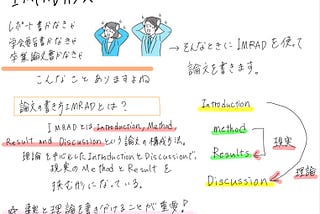 IMRADガス
レポート書かなきゃ
学会要旨書かなきゃ
卒業論文書かなきゃ
→ そんなときに IMRAD を使って
論文を書きます。
こんなことありますよね
論文の書き方 IMRAD とは？
IMRAD とは Introduction, Method
Result and Discussion という論文の構成方法。
理論を中心としたIntroductionとDiscussionで、
現実の Method と Result を
挟む形になっている。
Introduction
method
Results
Discussion
現実
理論
と理論を書き分けることが重要！